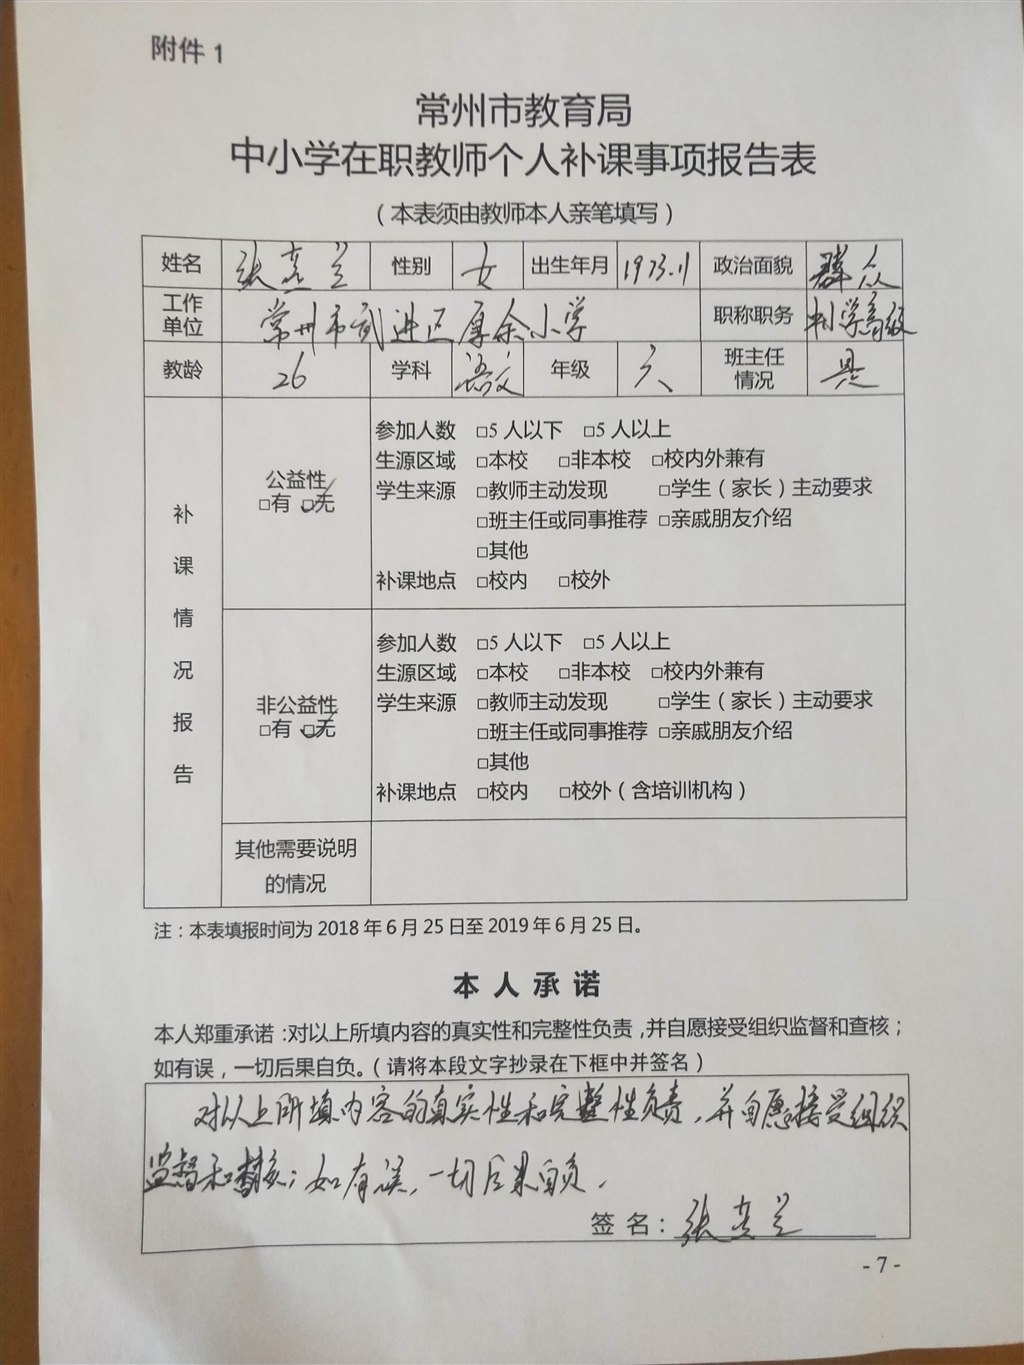 附件 1
常州市教育局
中小学在职教师个人补课事项报告表
（本表须由教师本人亲笔填写）
姓名 张燕兰 性别 女 出生年月 1973.11 政治面貌 群众
工作单位 常州市武进区厚余小学 职称职务 小学高级
教龄 26 学科 语文 年级 六 班主任情况 是
补课情况报告
公益性
□有 ☑无
参加人数 □5 人以下 □5 人以上
生源区域 □本校 □非本校 □校内外兼有
学生来源 □教师主动发现 □学生（家长）主动要求
□班主任或同事推荐 □亲戚朋友介绍
□其他
补课地点 □校内 □校外
非公益性
□有 ☑无
参加人数 □5 人以下 □5 人以上
生源区域 □本校 □非本校 □校内外兼有
学生来源 □教师主动发现 □学生（家长）主动要求
□班主任或同事推荐 □亲戚朋友介绍
□其他
补课地点 □校内 □校外（含培训机构）
其他需要说明
的情况
注：本表填报时间为 2018 年 6 月 25 日至 2019 年 6 月 25 日。
本 人 承 诺
本人郑重承诺：对以上所填内容的真实性和完整性负责，并自愿接受组织监督和查核；
如有误，一切后果自负。（请将本段文字抄录在下框中并签名）
对以上所填内容的真实性和完整性负责，并自愿接受组织
监督和查核；如有误，一切后果自负。
签 名：张燕兰
- 7 -